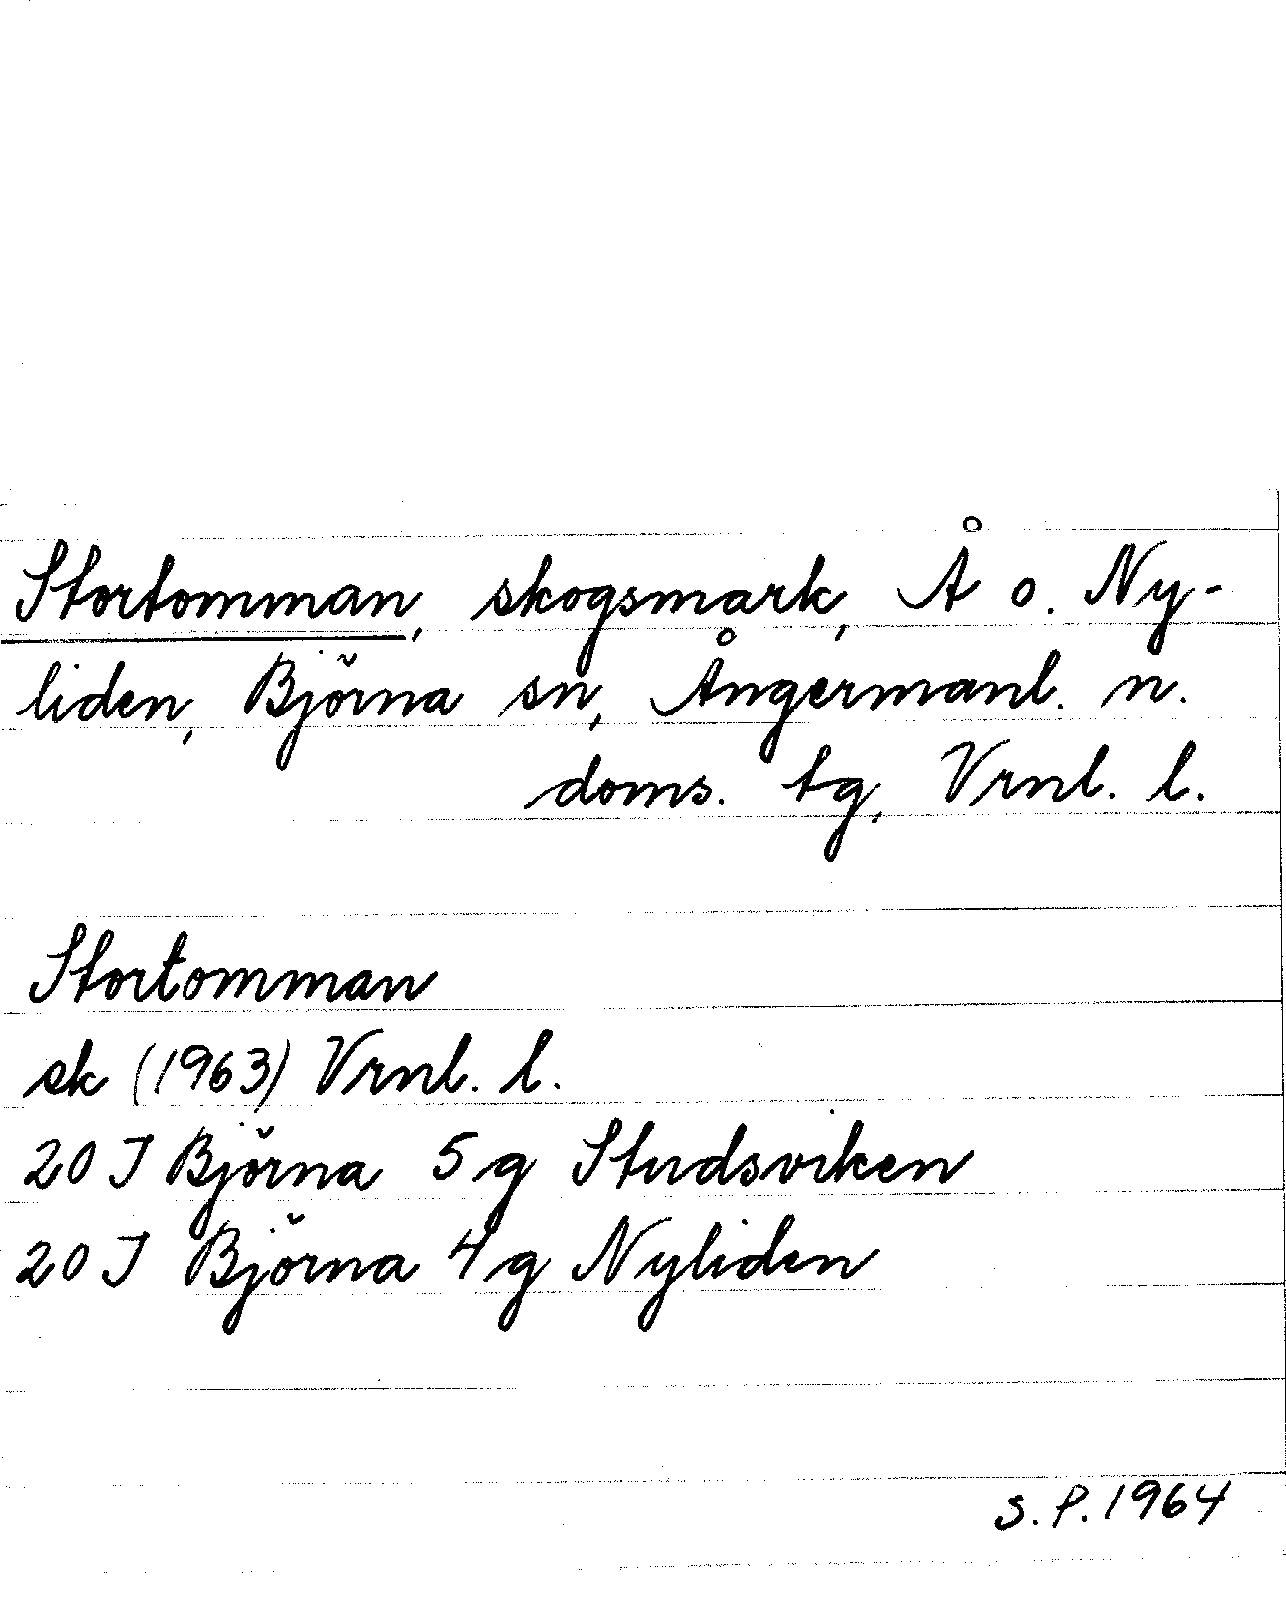 Stortomman, skogsmark, Å o. Ny-
liden, Björna sn, Ångermanl. n.
doms. tg, Vrnl. l.
Stortomman
sk (1963) Vrnl. l.
20 J Björna 5 g Studsviken
20 J Björna 4 g Nyliden
S. P. 1964